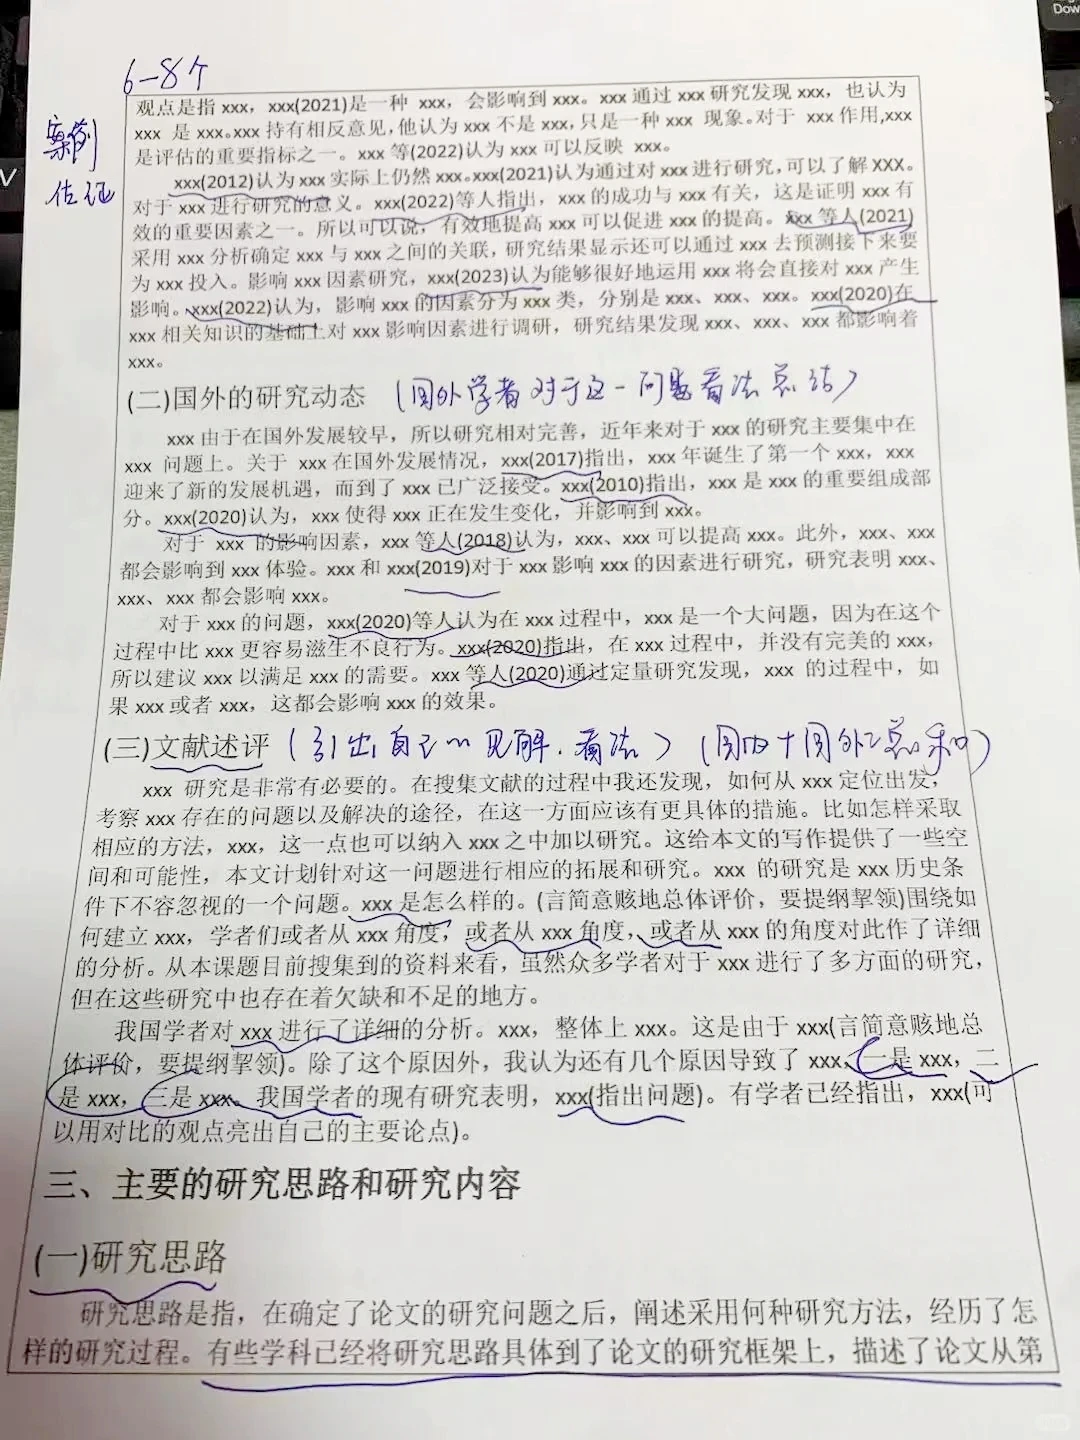 6-8个
案例
佐证
观点是指 xxx，xxx(2021)是一种 xxx，会影响到 xxx。xxx 通过 xxx 研究发现 xxx，也认为
xxx 是 xxx。xxx 持有相反意见，他认为 xxx 不是 xxx，只是一种 xxx 现象。对于 xxx 作用，xxx
是评估的重要指标之一。xxx 等(2022)认为 xxx 可以反映 xxx。
xxx(2012)认为 xxx 实际上仍然 xxx。xxx(2021)认为通过对 xxx 进行研究，可以了解 XXX。
对于 xxx 进行研究的意义。xxx(2022)等人指出，xxx 的成功与 xxx 有关，这是证明 xxx 有
效的重要因素之一。所以可以说，有效地提高 xxx 可以促进 xxx 的提高。xxx 等人(2021)
采用 xxx 分析确定 xxx 与 xxx 之间的关联，研究结果显示还可以通过 xxx 去预测接下来要
为 xxx 投入。影响 xxx 因素研究，xxx(2023)认为能够很好地运用 xxx 将会直接对 xxx 产生
影响。xxx(2022)认为，影响 xxx 的因素分为 xxx 类，分别是 xxx、xxx、xxx。xxx(2020)在
xxx 相关知识的基础上对 xxx 影响因素进行调研，研究结果发现 xxx、xxx、xxx 都影响着
xxx。
(二)国外的研究动态 (国外学者对于这一问题看法总结)
xxx 由于在国外发展较早，所以研究相对完善，近年来对于 xxx 的研究主要集中在
xxx 问题上。关于 xxx 在国外发展情况，xxx(2017)指出，xxx 年诞生了第一个 xxx，xxx
迎来了新的发展机遇，而到了 xxx 已广泛接受。xxx(2010)指出，xxx 是 xxx 的重要组成部
分。xxx(2020)认为，xxx 使得 xxx 正在发生变化，并影响到 xxx。
对于 xxx 的影响因素，xxx 等人(2018)认为，xxx、xxx 可以提高 xxx。此外，xxx、xxx
都会影响到 xxx 体验。xxx 和 xxx(2019)对于 xxx 影响 xxx 的因素进行研究，研究表明 xxx、
xxx、xxx 都会影响 xxx。
对于 xxx 的问题，xxx(2020)等人认为在 xxx 过程中，xxx 是一个大问题，因为在这个
过程中比 xxx 更容易滋生不良行为。xxx(2020)指出，在 xxx 过程中，并没有完美的 xxx，
所以建议 xxx 以满足 xxx 的需要。xxx 等人(2020)通过定量研究发现，xxx 的过程中，如
果 xxx 或者 xxx，这都会影响 xxx 的效果。
(三)文献述评 (引出自己的见解、看法) (国内+国外总和)
xxx 研究是非常有必要的。在搜集文献的过程中我还发现，如何从 xxx 定位出发，
考察 xxx 存在的问题以及解决的途径，在这一方面应该有更具体的措施。比如怎样采取
相应的方法，xxx，这一点也可以纳入 xxx 之中加以研究。这给本文的写作提供了一些空
间和可能性，本文计划针对这一问题进行相应的拓展和研究。xxx 的研究是 xxx 历史条
件下不容忽视的一个问题。xxx 是怎么样的。(言简意赅地总体评价，要提纲挈领)围绕如
何建立 xxx，学者们或者从 xxx 角度，或者从 xxx 角度，或者从 xxx 的角度对此作了详细
的分析。从本课题目前搜集到的资料来看，虽然众多学者对于 xxx 进行了多方面的研究，
但在这些研究中也存在着欠缺和不足的地方。
我国学者对 xxx 进行了详细的分析。xxx，整体上 xxx。这是由于 xxx(言简意赅地总
体评价，要提纲挈领)。除了这个原因外，我认为还有几个原因导致了 xxx，一是 xxx，二
是 xxx，三是 xxx。我国学者的现有研究表明，xxx(指出问题)。有学者已经指出，xxx(可
以用对比的观点亮出自己的主要论点)。
三、主要的研究思路和研究内容
(一)研究思路
研究思路是指，在确定了论文的研究问题之后，阐述采用何种研究方法，经历了怎
样的研究过程。有些学科已经将研究思路具体到了论文的研究框架上，描述了论文从第